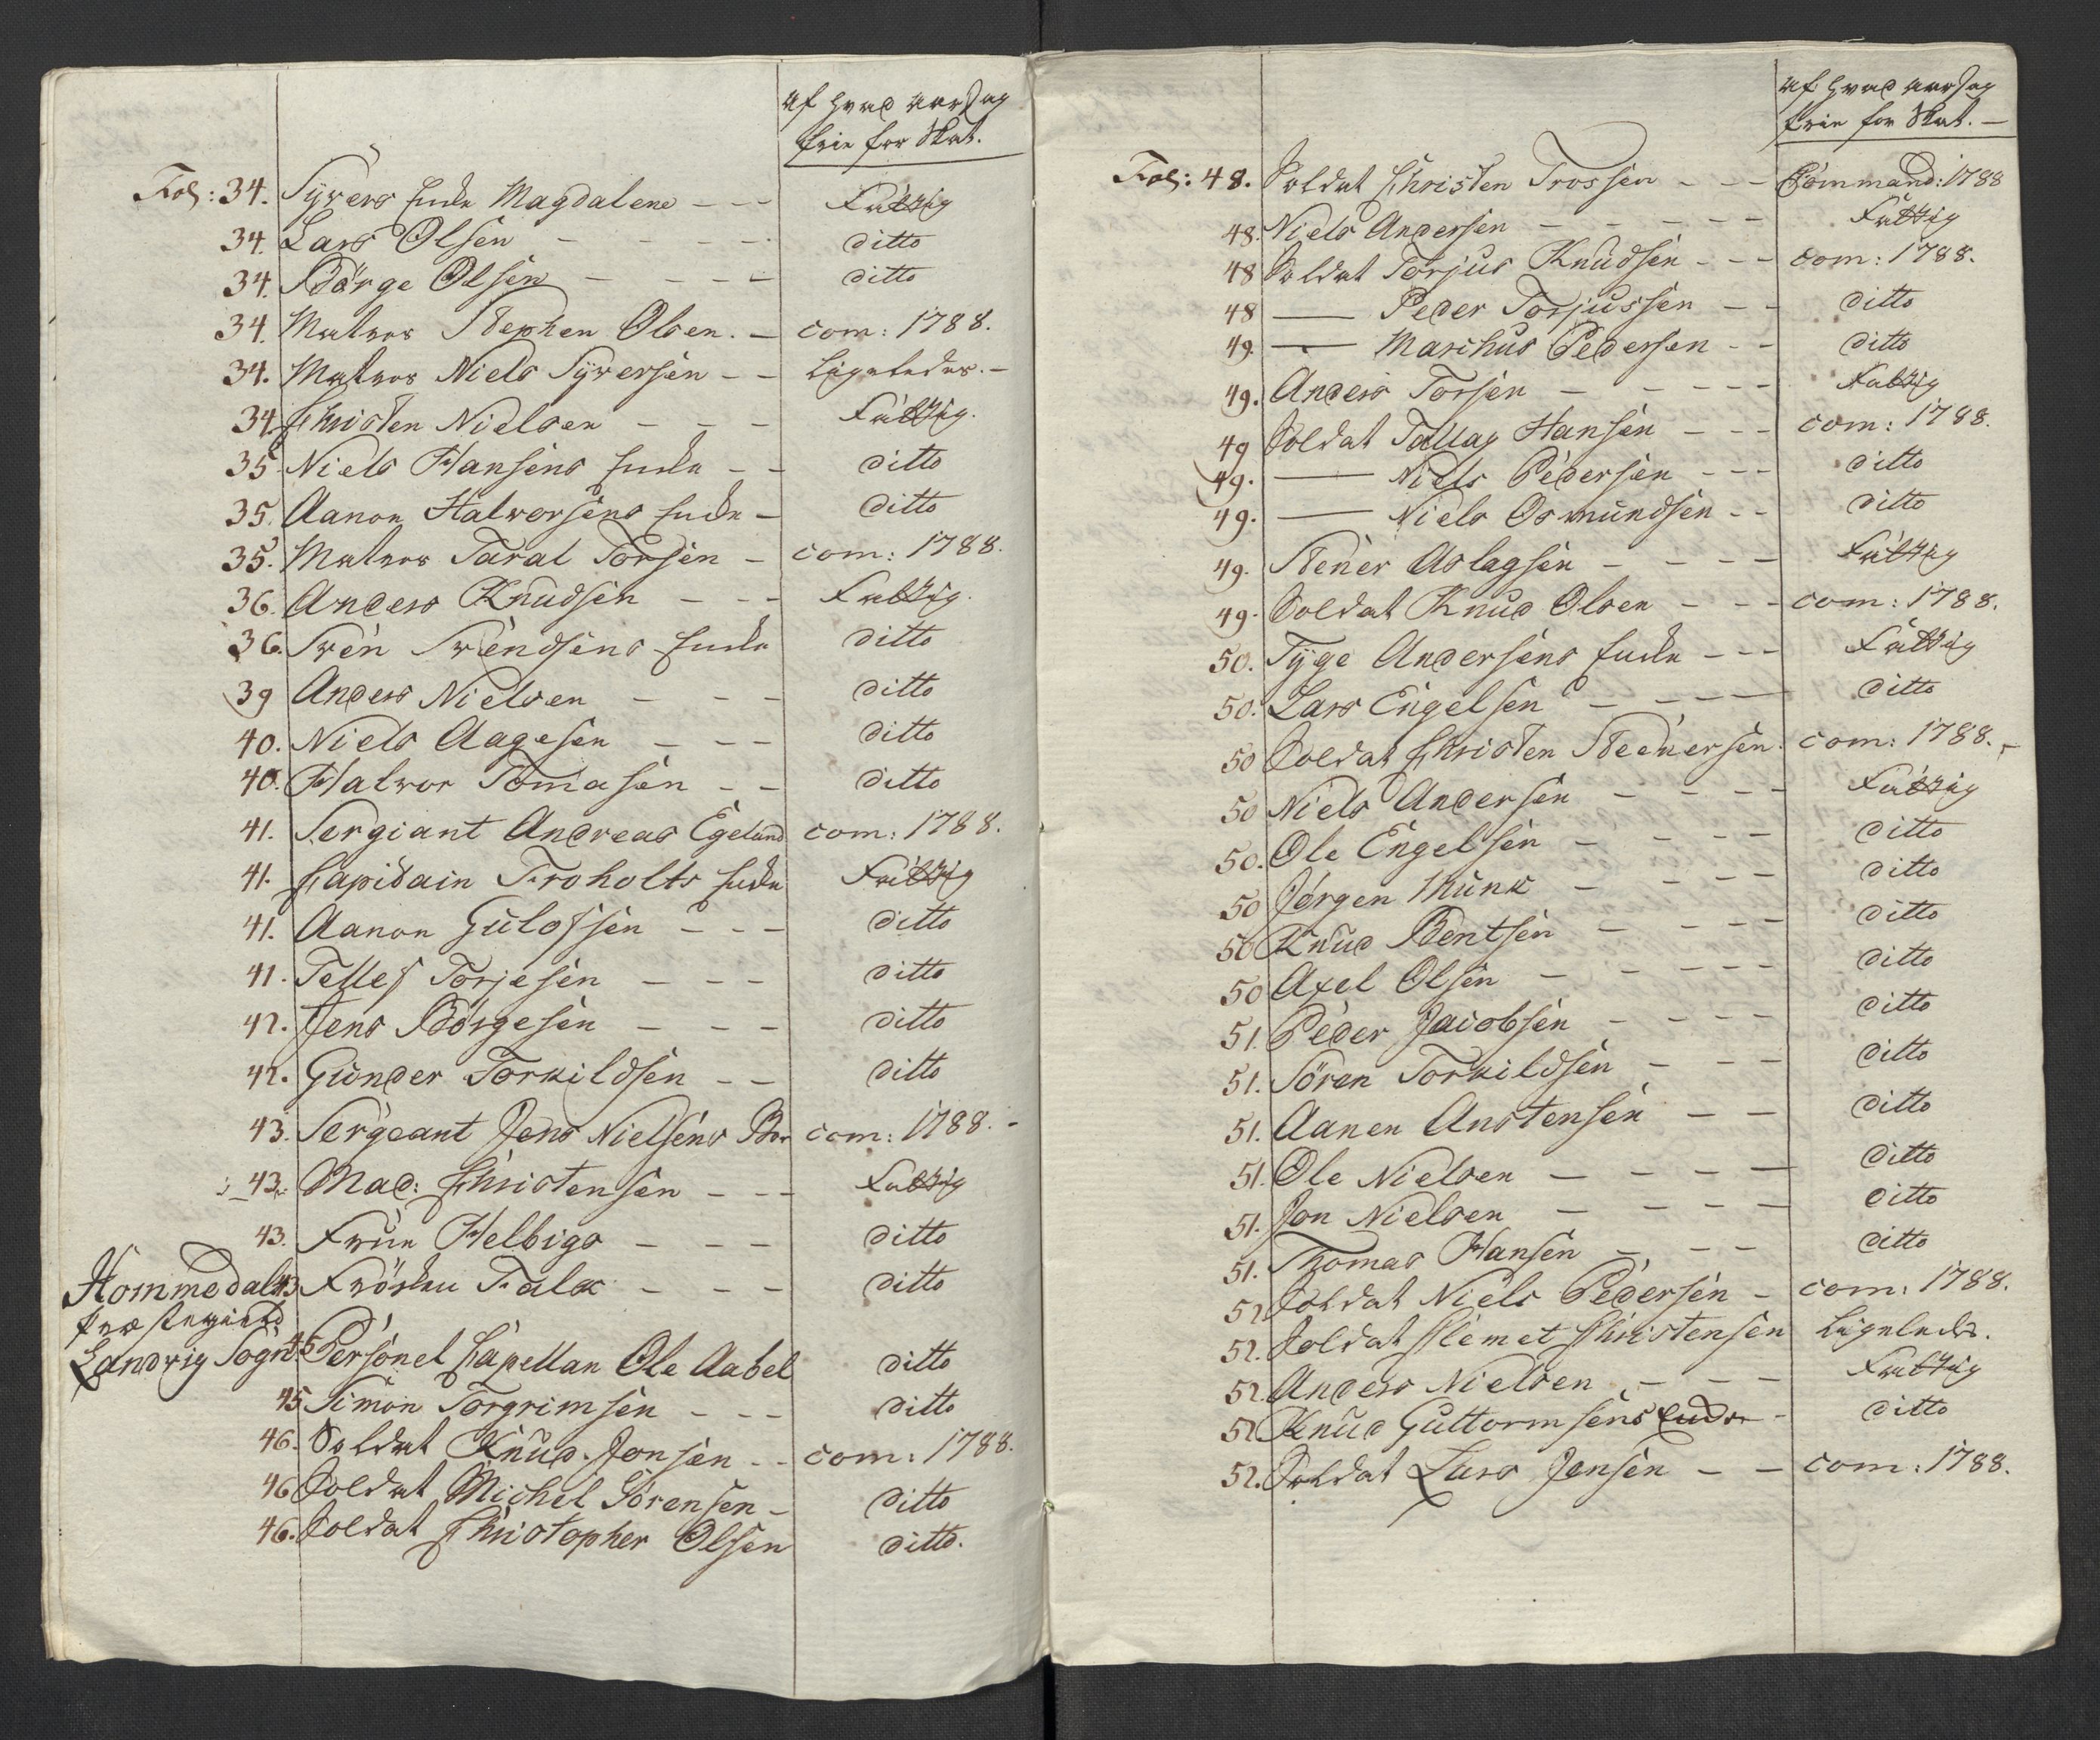 af hvad aarsag
frie for Skat.
Fol: 34. Syvers Enke Magdalene - - - Fattig
34. Lars Olsen - - - - ditto
34. Börge Olsen - - - - ditto
34. Matros Stephen Olsen. - com: 1788.
34. Matros Niels Syversen - - Ligeledes. -
34. Christen Nielsen - - - Fattig.
35 Niels Hansens Enke - - ditto
35. Aanon Halvorsens Enke - ditto
35. Matros Taral Torsen - com: 1788.
36. Anders Knudsen - - - Fattig.
36. Sven Svendsens Enke ditto
39 Anders Nielsen - - - ditto
40. Niels Aagesen - - - ditto
40. Halvor Tomasen - - ditto
41. Sergiant Andreas Egelund com: 1788.
41. Capitain Froholts Enke Fattig
41. Aanon Gulofsen - - - ditto
41. Tellef Torjesen - - - ditto
42. Jens Börgesen - - - ditto
42. Gunder Torkildsen - - ditto
43. Sergeant Jens Nielsens com: 1788. -
43. Mad: Christensen - - - Fattig
43. Frue Helbigs - - - ditto
Hommedals 43 Fröken Falck - - - ditto
Præstegield
Landvig Sogn 45 Personel Capellan Ole Aabel ditto
45 Simon Torgrimsen - - - ditto
46. Soldat Knud Jonsen - - com: 1788.
46 Soldat Michel Sörensen - ditto
46. Soldat Christopher Olsen ditto.
af hvad aarsag
frie for Skat. -
Fol: 48. Soldat Christen Trossen - - - Command: 1788
48. Niels Andersen - - - - - Fattig
48 Soldat Torjus Knudsen - - - com: 1788.
48 — Peder Torjussen - - ditto
49. — Marchus Pedersen - - ditto
49. Anders Torsen - - - - - Fattig
49 Soldat Tallag Hansen - - - com: 1788.
49. — Niels Pedersen - - - ditto
49. — Niels Osmundsen - - ditto
49. Stener Aslagsen - - - - Fattig
49. Soldat Knud Olsen - - - com: 1788.
50. Tyge Andersens Enke - - - Fattig
50. Lars Engelsen - - - - ditto
50 Soldat Christen Steenersen. com: 1788. -
50 Niels Andersen - - - - Fattig
50. Ole Engelsen - - - - ditto
50 Jørgen Munk - - - - ditto
50 Knud Bentsen - - - - ditto
50 Axel Olsen - - - - - ditto
51. Peder Jacobsen - - - - ditto
51. Sören Torkildsen - - - ditto
51. Aanen Anstensen - - ditto
51. Ole Nielsen - - - - ditto
51. Jon Nielsen - - - - ditto
51. Thomas Hansen - - - ditto
52 Soldat Niels Pedersen - com: 1788.
52. Soldat Clemet Christensen Ligeledes.
52. Anders Nielsen - - - Fattig
52 Knud Guttormsens Enke - ditto
52. Soldat Lars Jensen - - com: 1788.